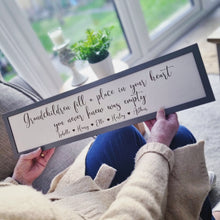 Grandchildren fill a place in your heart
you never knew was empty
Isabelle ♥ Harry ♥ Ellie ♥ Harley ♥ Arthur